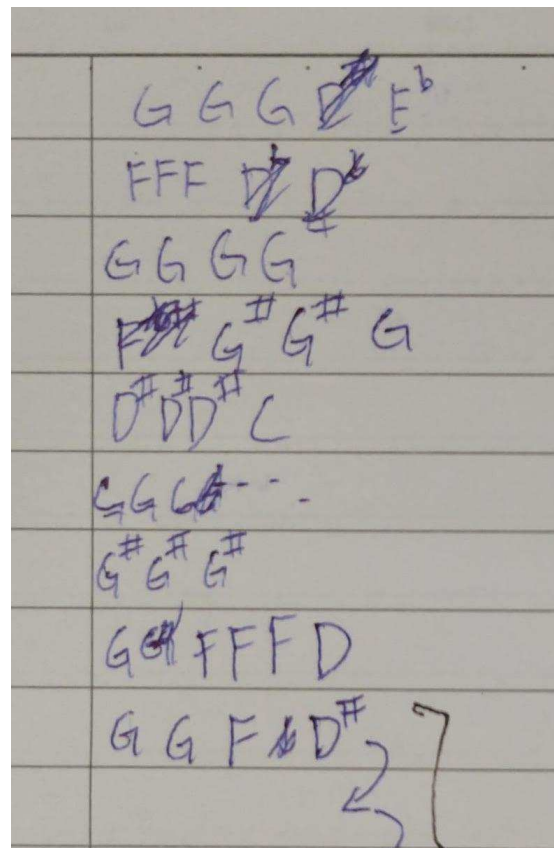 G G G E♭
FFF D♭
G G G G#
F G# G# G
D# D# D# C
G G G - - -
G# G# G#
G F F F D
G G F D#